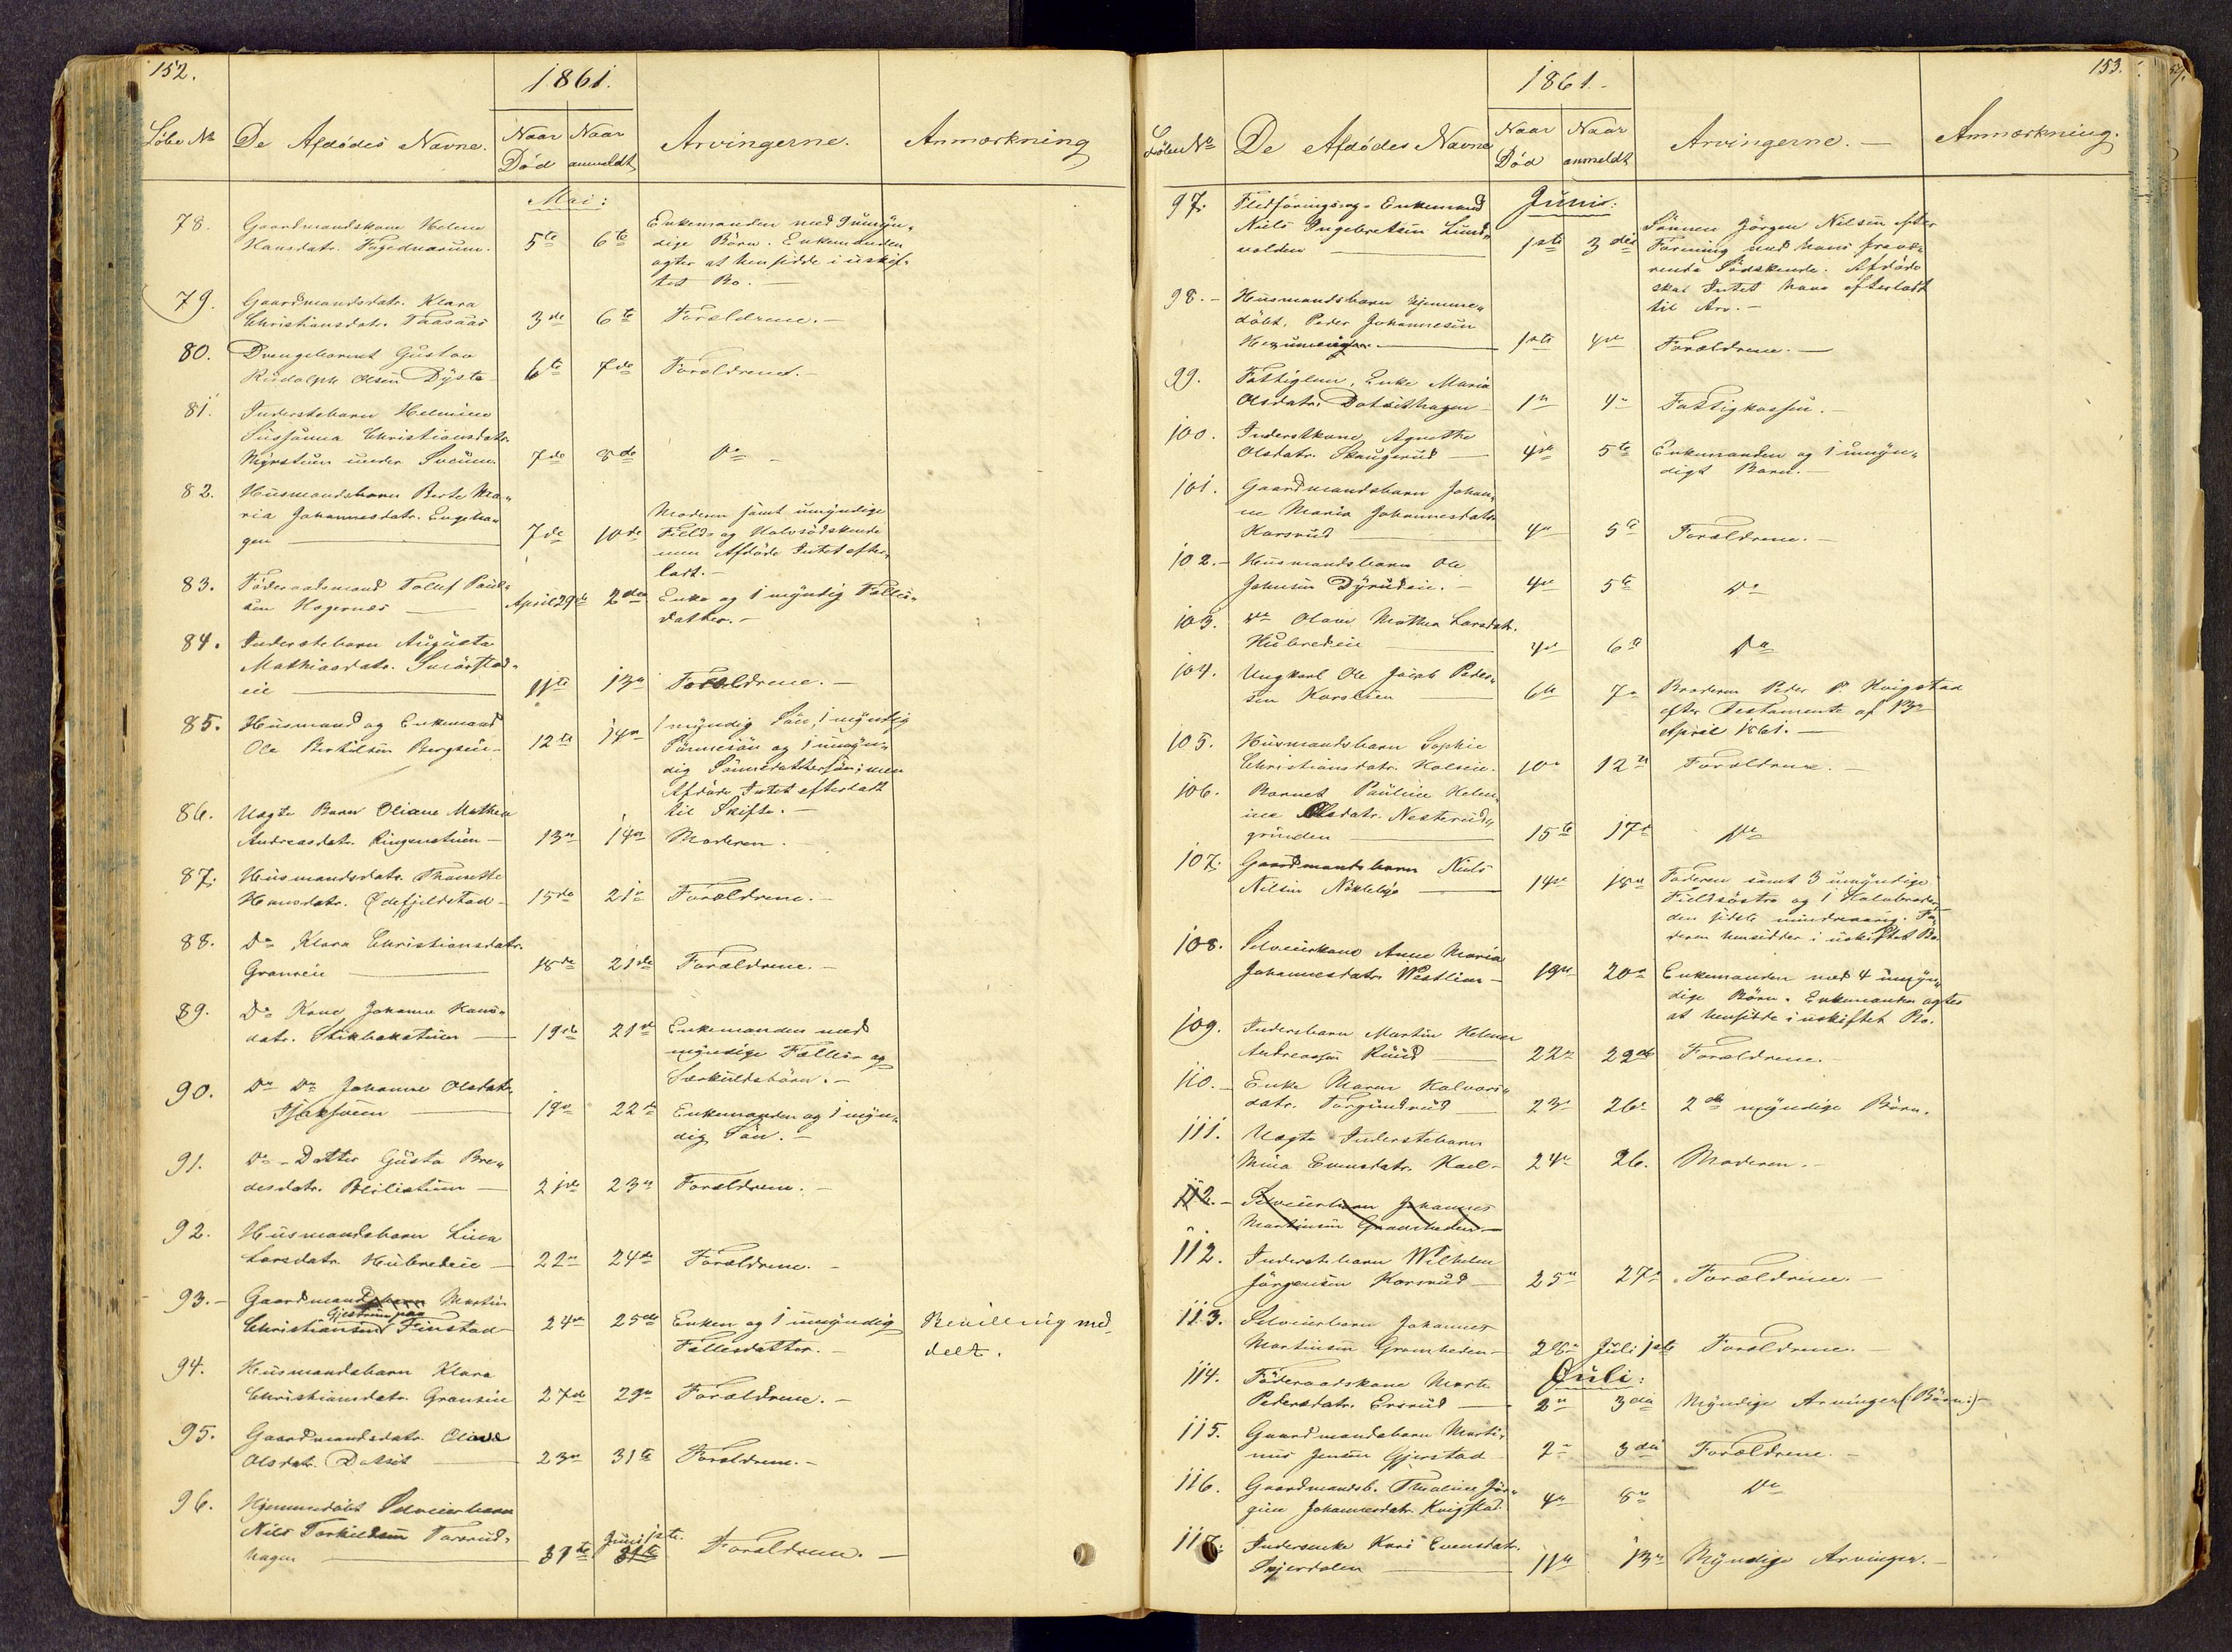 152.
1861.
Løbe No
De Afdødes Navne.
Naar Død
Naar anmeldt
Arvingerne.
Anmærkning
Mai:
78. Gaardmandskone Helene
Hansdatr. Fagednærum. 5te 6te
Enkemanden med 9 umyn-
dige Børn. Enkemanden
agter at hensidde i uskif-
tet Bo. —
79. Gaardmandsdatr. Klara
Christiansdatr. Taasaas 3de 6te Forældrene. —
80. Drengebarnet Gustav
Rudolph Olsen Dyste 6te 7de Forældrene. —
81. Inderstebarn Helmine
Sussanna Christiansdatr.
Myrstuen under Sveum. 7de 8de Do —
82. Husmandsbarn Berte Ma-
ria Johannesdatr. Engeha-
gen — 7de 10de
Moderen samt umyndige
Field- og Halvsødskende
men Afdøde Intet efter-
ladt. —
83. Føderaadsmand Tollef Paul-
sen Hagernæs — April 29de 2den Enke og 1 myndig Fælles-
datter. —
84. Inderstebarn Augusta
Mathiasdatr. Smørstad-
eie — 11te 13n Forældrene. —
85. Husmand og Enkemand
Ole Berthelsen Bergseie 12te 14n
1 myndig Søn, 1 myndig
Sønnesøn og 1 umyn-
dig Sønnedattersøn; men
Afdøde Intet efterladt
til Skifte. —
86. Uægte Barn Oliane Mathea
Andreasdatr. Ringenstuen — 13n 14n Moderen.
87. Husmandsdatr. Thonette
Hansdatr. Ødefjeldstad — 15de 21n Forældrene. —
88. Do Klara Christiansdatr.
Graneie — 18de 21de Forældrene. —
89. Do Kone Johanne Hans-
datr. Stikbakstuen — 19de 21de Enkemanden med
myndige Fælles- og
Særkuldsbørn. —
90. Do Do Johanne Olsdatr.
— 19n 22de Enkemanden og 1 myn-
dig Søn. —
91. Do – Datter Gusta Bre-
desdatr. — 21de 23n Forældrene. —
92. Husmandsbarn Lina
Larsdatr. Hubredeie — 22n 24de Forældrene. —
93. – Gaardmand Martin
Gjestrum paa
Christiansen Finstad — 24n 25de Enken og 1 umyndig Bevilling med-
Fællesdatter. — delt.
94. Husmandsbarn Klara
Christiansdatr. Graneie 27de 29n Forældrene. —
95. Gaardmandsdatr. Olava
Olsdatr. Dotset — 23n 31te Forældrene. —
96. Hjemmedøbt Selveierbarn
Nils Torkildsen Torsrud-
hagen — 31te Juni 1ste. 31te Forældrene. —
153.
1861.
Løbe No
De Afdødes Navne
Naar Død
Naar anmeldt
Arvingerne. —
Anmærkning.
Juni:
97. Fledføringsog- Enkemand
Niels Ingebretsen Lund-
volden — 1ste 3die
Sønnen Jørgen Nielsen efter
Forening med hans fravæ-
rende Sødskende. Afdøde
skal Intet have efterladt
til Arv. —
98. – Husmandsbarn hjemme-
døbt, Peder Johannesen
— 1ste 4de Forældrene. —
99. Fattiglem, Enke Maria
Olsdatr. Dotsethagen — 1n 4n Fattigkassen. —
100. Inderstkone Agnethe
Olsdatr. Skaugerud — 4de 5te Enkemanden og 1 umyn-
digt Barn. —
101. Gaardmandsbarn Johan-
ne Maria Johannesdatr.
Korsrud 4n 5te Forældrene. —
102. – Husmandsbarn Ole
Johnsen Dyrudeie. — 4de 5te Do
103. Do Olava Mathea Larsdatr.
Hubredeie — 4de 6te Do
104. Ungkarl Ole Jacob Peder-
sen Korslien 6te 7n Broderen Peder P. Kvigstad
efter Testamente af 13n
April 1861. —
105. Husmandsbarn Sophie
Christiansdatr. Kolseie. 10n 12n Forældrene. —
106. Barnet Pauline Helm-
ine Olsdatr. Nesterud-
grinden — 15te 17n Do
107. Gaardmandsbarn Niels
Nilsen Nøkleby — 14n 18n Faderen samt 3 umyndige
Fieldsøstre og 1 Halvbroder,
den sidste mindreaarig. Fa-
deren hensidder i uskiftet Bo.
108. Selveierkone Anne Maria
Johannesdatr. Westlien — 19n 20n Enkemanden med 4 umyn-
dige Børn. Enkemanden agter
at hensidde i uskiftet Bo.
109.Indersbarn Martin Helmer
Andreassen Ruud — 22n 22de Forældrene. —
110. – Enke Maren Halvors-
datr. Torgundrud 23n 26n 2de myndige Børn.
111. Uægte Inderstebarn
Mina Evensdatr. Kael — 24n 26. Moderen. —
112. – Selveierbarn Johannes
Martinsen Gramheden. —
112. Inderstebarn Wilhelm
Jørgensen Korsrud — 25n 27n Forældrene. —
113. Selveierbarn Johannes
Martinsen Gramheden — 28n Juli 1ste Forældrene. —
Juli:
114. Føderaadskone Marte
Pedersdatr. Ersrud — 2n 3die Myndige Arvinger (: Børn :) —
115. Gaardmandsbarn Marti-
nus Jensen Gjerstad 2n 3die Forældrene. —
116. Gaardmandsb. Thaline Jør-
gine Johannesdatr. Kvigstad. 4n 8n Do
117. Indersenke Kari Evensdatr.
Skjerdalen — 11n 13n Myndige Arvinger. —